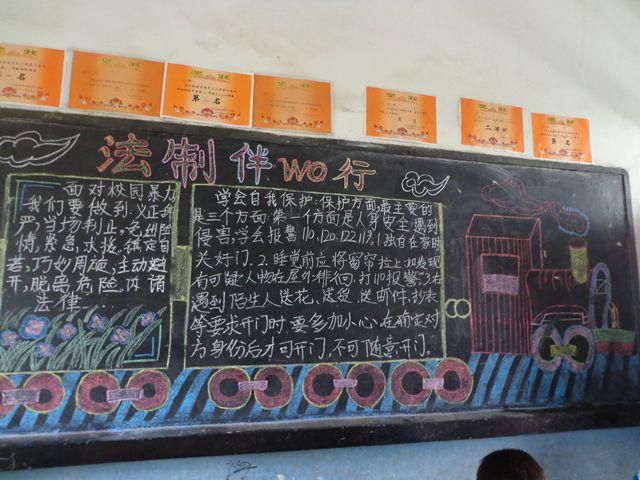 第一名
第 名
二等奖
第 名
法制伴WO行
面对校园暴力
我们要做到义正辞
严,当场制止,
情紧急,求援。镇定自
若,巧妙周旋,主动避
开,脱离危险。
法律
学会自我保护:保护方面,最主要的
是三个方面:第一个方面是人身安全:遇到
侵害,学会报警110,120,122,119。1.独自在家时
关好门。2.睡觉前应将窗帘拉上,如发现
有可疑人物在屋外徘徊,打110报警。3.若
遇到陌生人送花、送货、送邮件、抄表
等要求开门时,要多加小心,在确定对
方身份后才可开门,不可随意开门。